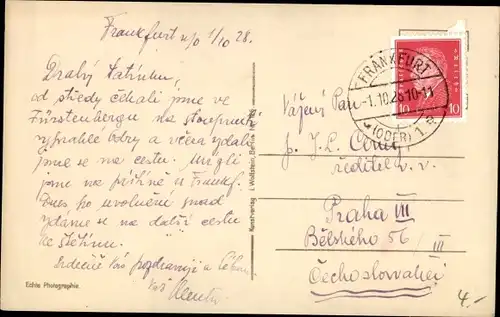 Frankfurt n/o 1/10 28.
Drahý tatínku,
od středy čekali jsme ve
Fürstenbergu na stoupnutí
Odry a včera vydali
jsme se na cestu.
jsme na v Frankf.
Dnes po uvolnění snad
vydáme se na další cestu
ke Štětínu.
Srdečně Vás pozdravuji a
Váš
Echte Photographie.
Kunstverlag J. Wollstein, Berlin
FRANKFURT
-1.10.28.10-11
(ODER) 1
10 10
Vážený Pan
p. J. L. Černý
ředitel v. v.
Praha VII
Bělského 56/III
Čechoslovakei
4,-